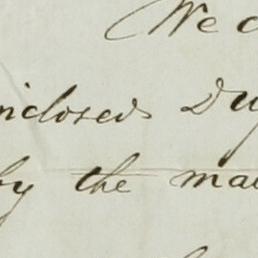 We
nclosed Du
by the ma